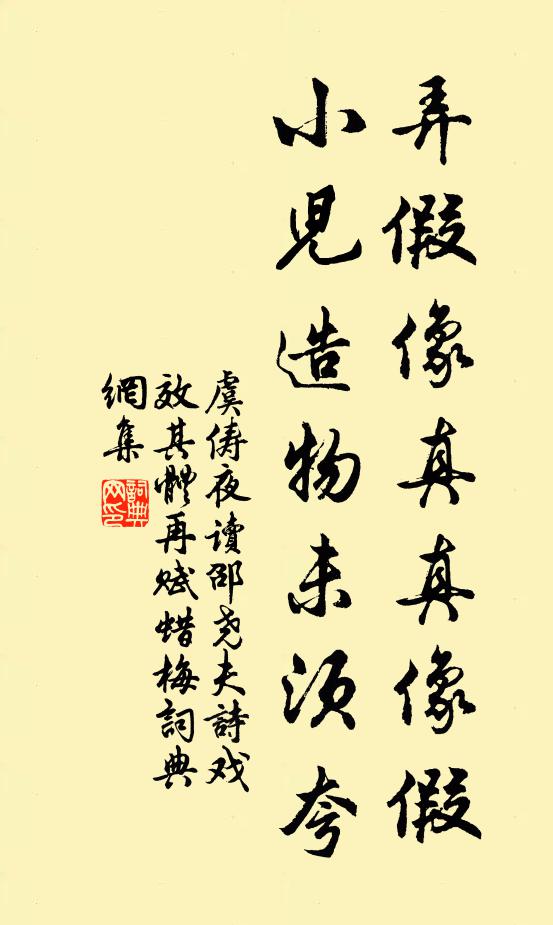 弄假像真真像假
小児造物未須夸
虞俦夜讀邵尧夫詩戏
效其體再赋蜡梅詞典
網集
詞典
网印